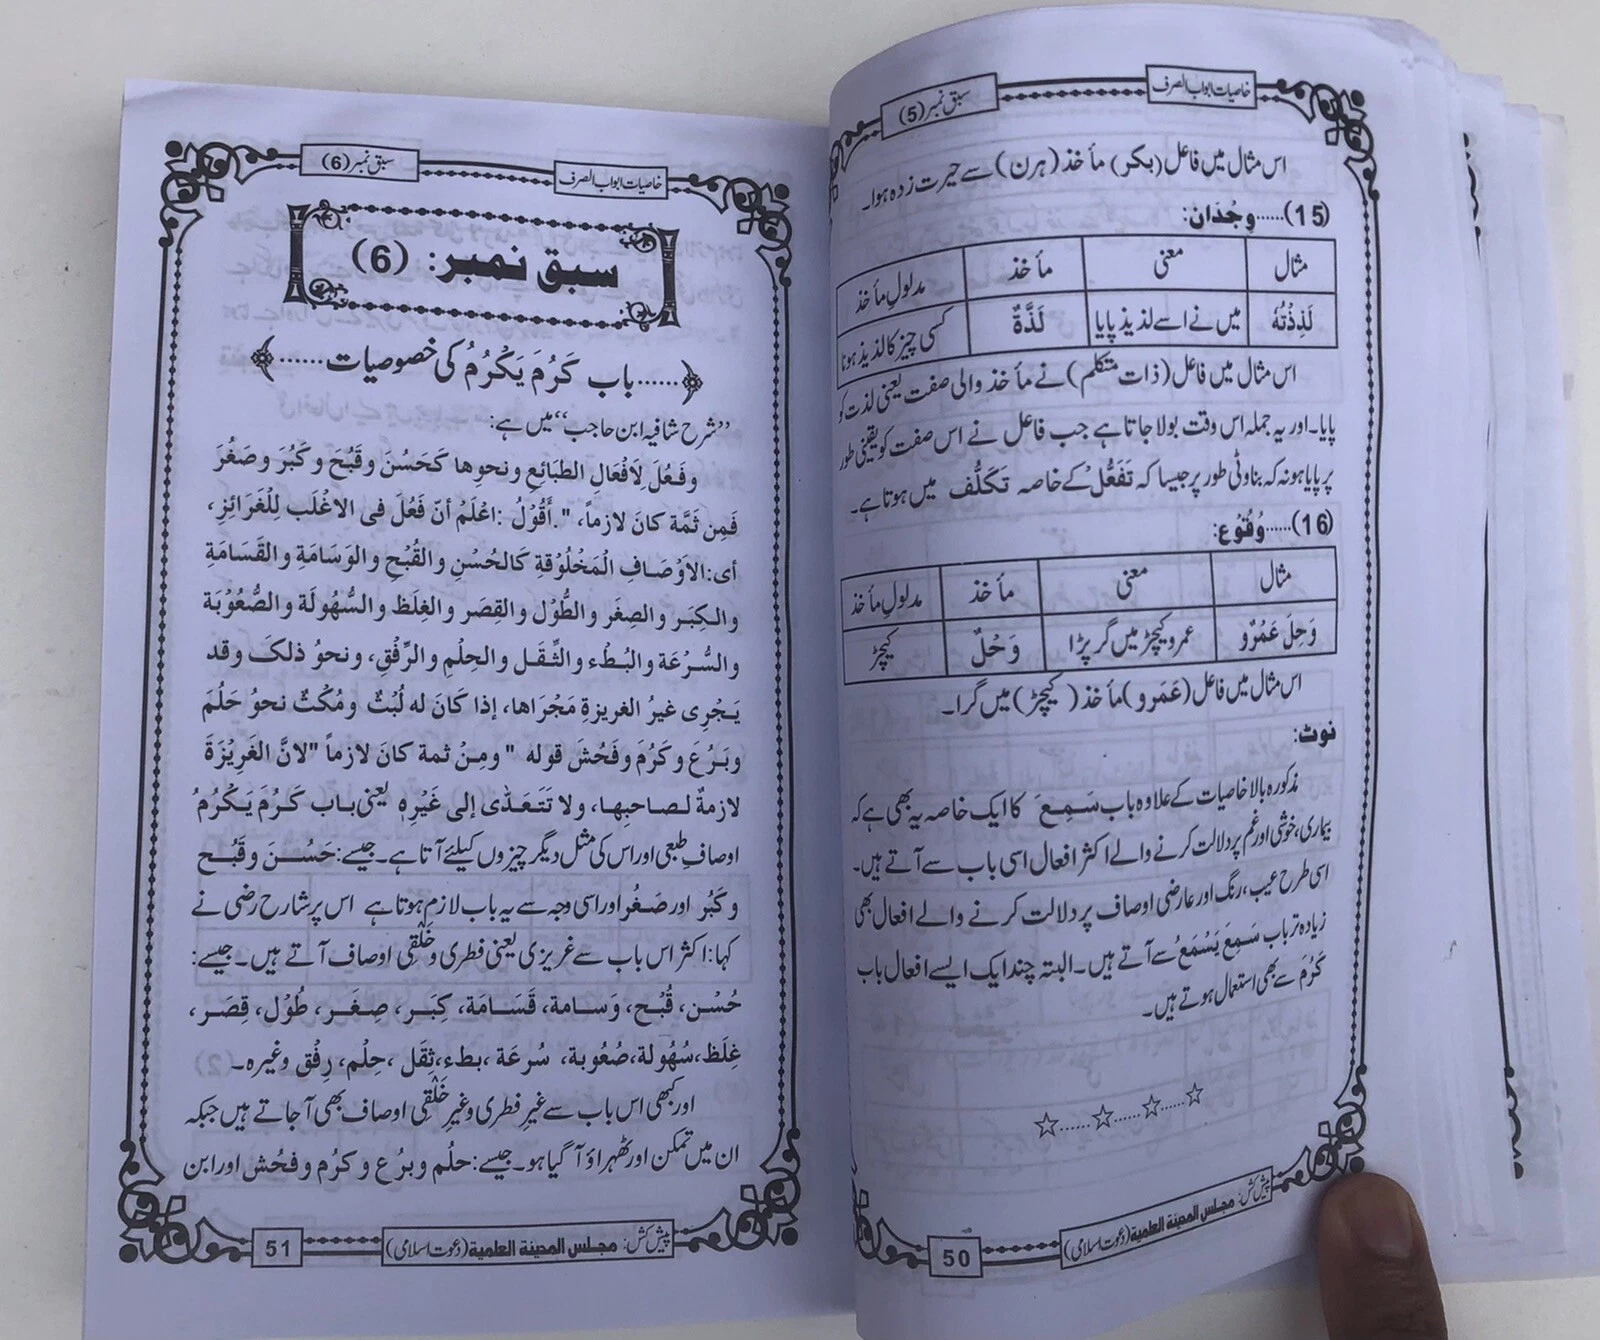 خاصیات ابواب الصرف
سبق نمبر (5)
اس مثال میں فاعل (بکر) مأخذ (ہرن) سے حیرت زدہ ہوا۔
(15)......وِجْدَان:
مثال معنی مأخذ مدلولِ مأخذ
لَذِذْتُهٗ میں نے اسے لذیذ پایا لَذَّةٌ کسی چیز کا لذیذ ہونا
اس مثال میں فاعل (ذات متکلم) نے مأخذ والی صفت یعنی لذت کو
پایا۔ اور یہ جملہ اس وقت بولا جاتا ہے جب فاعل نے اس صفت کو یقینی طور
پر پایا ہو نہ کہ بناوٹی طور پر جیسا کہ تَفَعُّلْ کے خاصہ تَکَلُّف میں ہوتا ہے۔
(16)......وُقُوْع:
مثال معنی مأخذ مدلولِ مأخذ
وَحِلَ عَمْرٌو عمرو کیچڑ میں گر پڑا وَحْلٌ کیچڑ
اس مثال میں فاعل (عَمَرو) مأخذ (کیچڑ) میں گرا۔
نوٹ:
مذکورہ بالا خاصیات کے علاوہ باب سَمِعَ کا ایک خاصہ یہ بھی ہے کہ
بیماری، خوشی اور غم پر دلالت کرنے والے اکثر افعال اسی باب سے آتے ہیں۔
اسی طرح عیب، رنگ اور عارضی اوصاف پر دلالت کرنے والے افعال بھی
زیادہ تر باب سَمِعَ یَسْمَعُ سے آتے ہیں۔ البتہ چند ایک ایسے افعال باب
کَرُمَ سے بھی استعمال ہوتے ہیں۔
☆......☆......☆......☆
پیش کش: مجلس المدینۃ العلمیۃ (دعوت اسلامی)
50
خاصیات ابواب الصرف
سبق نمبر (6)
سبق نمبر: (6)
......باب کَرُمَ یَکْرُمُ کی خصوصیات......
’’شرح شافیہ ابن حاجب‘‘ میں ہے:
وفَعُلَ لِأفْعَالِ الطبائِعِ ونحوِها كَحَسُنَ وقَبُحَ وكَبُرَ وصَغُرَ
فَمِن ثَمَّة كانَ لازماً، ".أَقُوْلُ :اعْلَمْ أنّ فَعُلَ فى الاغْلَب لِلْغَرَائِزِ،
أى:الاَوْصَافِ الْمَخْلُوْقَةِ كَالحُسْنِ والقُبْحِ والوَسَامَةِ والقَسَامَةِ
والكِبَر والصِغَر والطُّوْل والقِصَر والغِلَظ والسُّهُولَة والصُّعُوْبَة
والسُّرْعَة والبُطْء والثِّقَل والحِلْمِ والرِّفْقِ، ونحوُ ذلكَ وقد
يَجْرِى غيرُ الغريزةِ مَجْرَاها، إذا كَانَ له لُبْثٌ ومُكْثٌ نحوُ حَلُمَ
وبَرُعَ وكَرُمَ وفَحُشَ قوله " ومِنْ ثمة كانَ لازماً "لانَّ الغَرِيْزَةَ
لازمةٌ لصاحبِها، ولا تَتَعَدّى إلى غَيْرِه یعنی باب کَرُمَ یَکْرُمُ
اوصافِ طبعی اور اس کی مثل دیگر چیزوں کیلئے آتا ہے۔ جیسے: حَسُنَ وقَبُحَ
وکَبُر اور صَغُر اور اسی وجہ سے یہ باب لازم ہوتا ہے اس پر شارح رضی نے
کہا: اکثر اس باب سے غریزی یعنی فطری وخَلْقِی اوصاف آتے ہیں۔ جیسے:
حُسْن، قُبْح، وَسامة، قَسَامَة، كِبَر، صِغَر، طُوْل، قِصَر،
غِلَظ، سُهُولة، صُعُوبة، سُرعَة، بطء، ثِقَل، حِلْم، رِفْق وغیرہ۔
اور کبھی اس باب سے غیر فطری وغیر خَلْقِی اوصاف بھی آجاتے ہیں جبکہ
ان میں تمکن اور ٹھہراؤ آ گیا ہو۔ جیسے: حلُم وبرُع وکرُم وفحُش اور ابن
پیش کش: مجلس المدینۃ العلمیۃ (دعوت اسلامی)
51